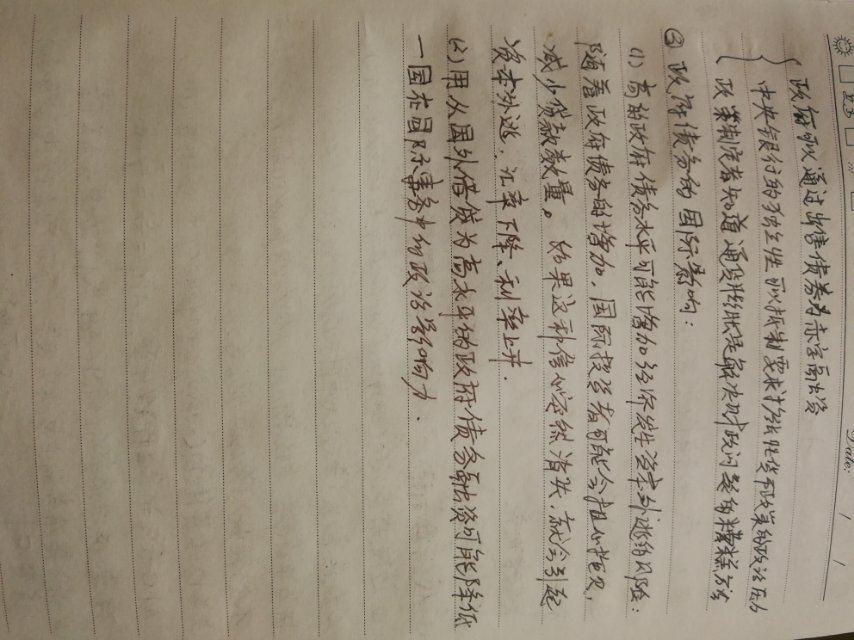 Date: / /
政府可以通过出售债券为赤字融资
中央银行的独立性可以抵制要求扩张性货币政策的政治压力
政策制定者知道通货膨胀是解决财政问题的糟糕方法
③ 政府债务的国际影响:
(1) 高的政府债务水平可能增加经济发生资本外逃的风险:
随着政府债务的增加,国际投资者可能会担心拖欠,
减少贷款数量。如果这种信心突然消失,就会引起
资本外逃,汇率下降、利率上升.
(2) 用从国外借贷为高水平的政府债务融资可能降低
一国在国际事务中的政治影响力.